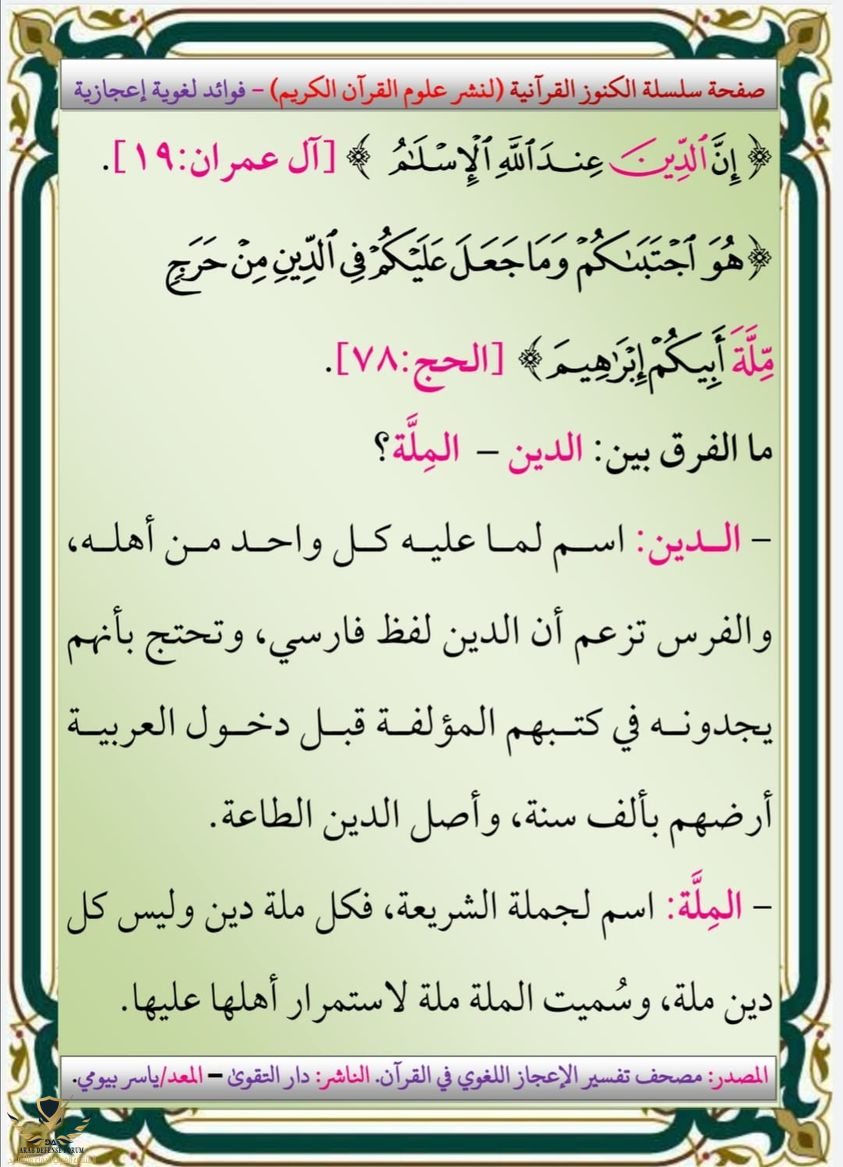 صفحة سلسلة الكنوز القرآنية (لنشر علوم القرآن الكريم) – فوائد لغوية إعجازية
﴿ إِنَّ ٱلدِّينَ عِندَ ٱللَّهِ ٱلْإِسْلَٰمُ ﴾ [آل عمران:١٩].
﴿هُوَ ٱجْتَبَىٰكُمْ وَمَا جَعَلَ عَلَيْكُمْ فِي ٱلدِّينِ مِنْ حَرَجٍ
مِّلَّةَ أَبِيكُمْ إِبْرَٰهِيمَ﴾ [الحج:٧٨].
ما الفرق بين: الدين – المِلَّة؟
– الدين: اسم لما عليه كل واحد من أهله،
والفرس تزعم أن الدين لفظ فارسي، وتحتج بأنهم
يجدونه في كتبهم المؤلفة قبل دخول العربية
أرضهم بألف سنة، وأصل الدين الطاعة.
– المِلَّة: اسم لجملة الشريعة، فكل ملة دين وليس كل
دين ملة، وسُميت الملة ملة لاستمرار أهلها عليها.
المصدر: مصحف تفسير الإعجاز اللغوي في القرآن. الناشر: دار التقوىٰ – المعد/ياسر بيومي.
DA
ARAB DEFENSE FORUM